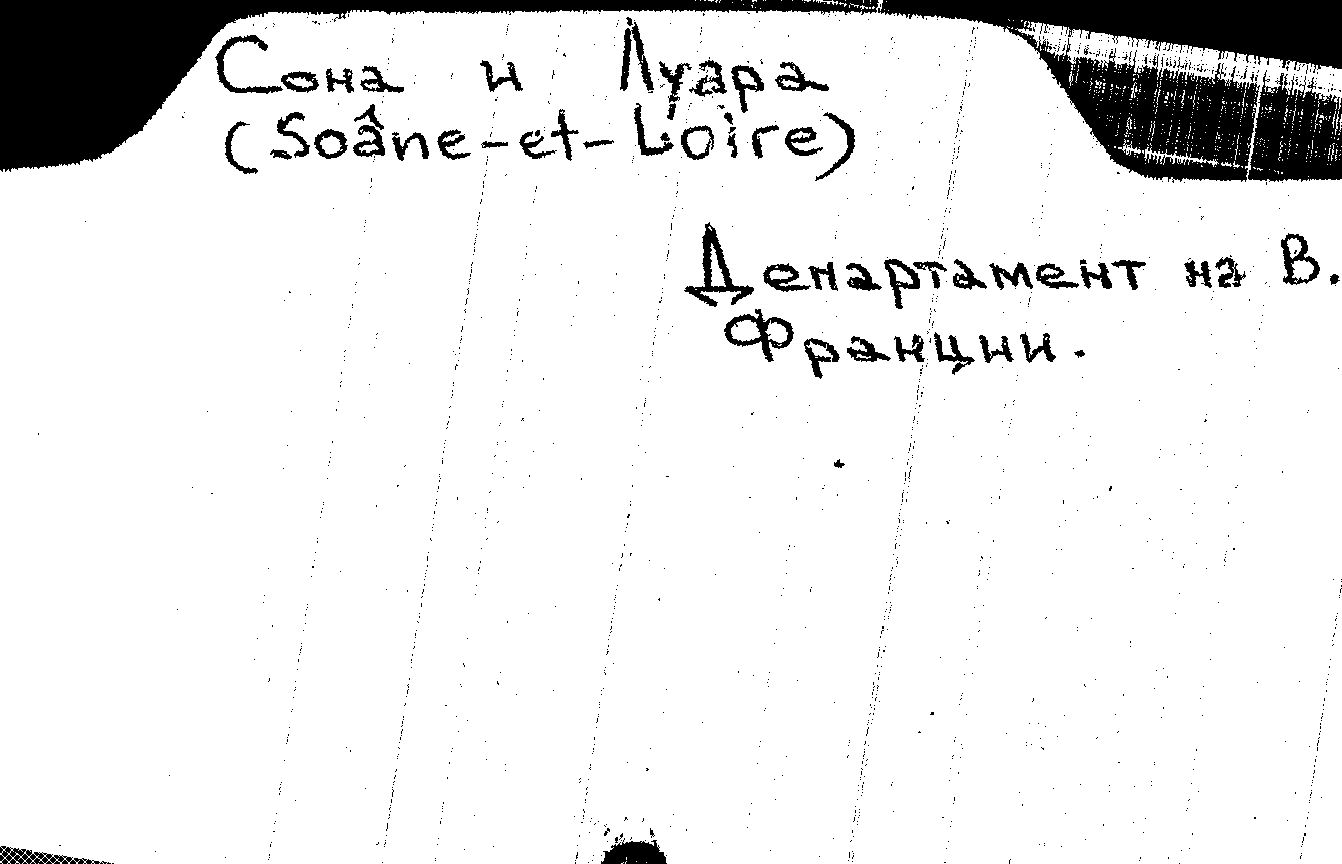 Сона и Луара
(Soâne-et-Loire)
Департамент на В.
Франции.